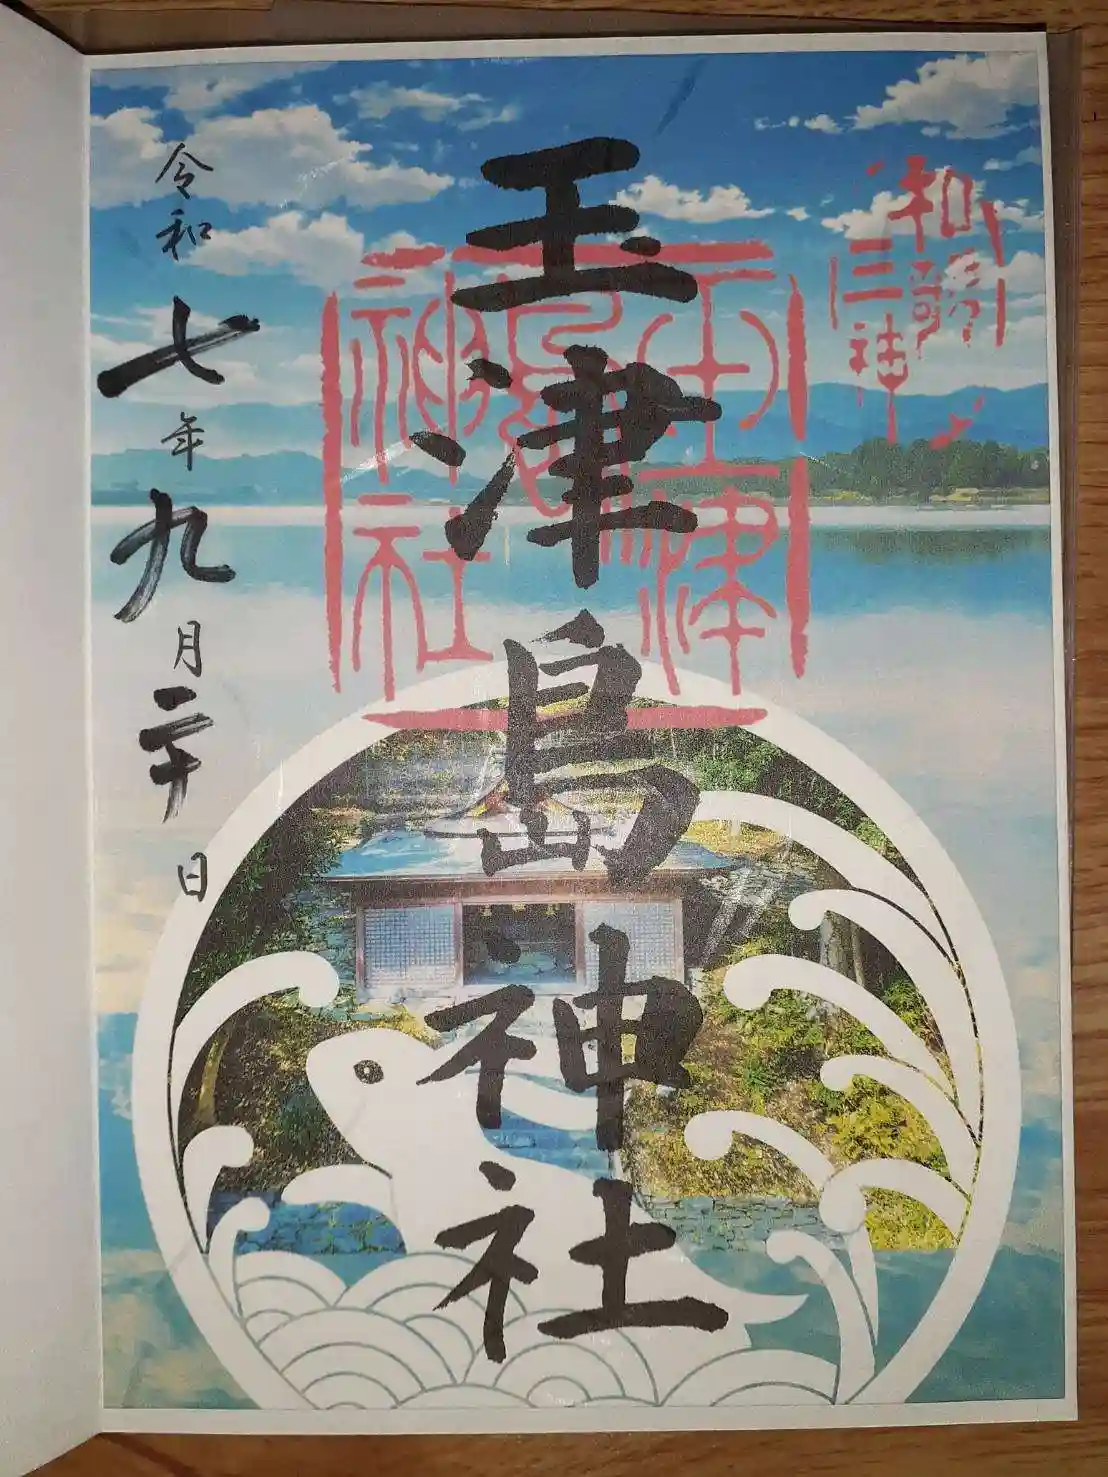 和歌
三神
玉津島神社
玉津
神社
令和七年九月二十日